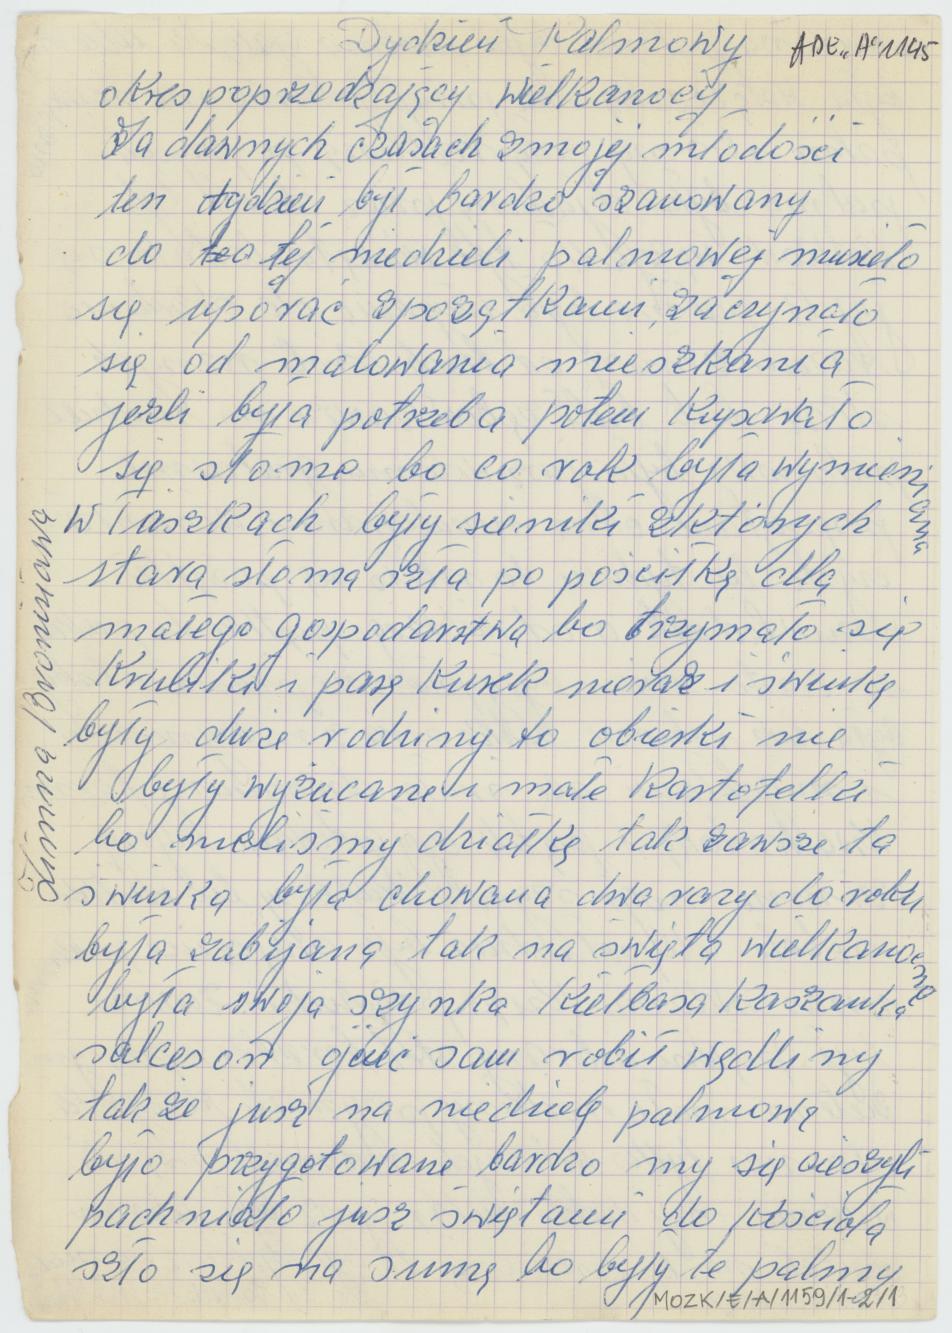 Dydzień Palmowy
ADE "A" 1145
okres poprzedzający wielkanocy
Za dawnych czasach zmojej młodośći
ten tydzień był bardzo szanowany
do tej niedzieli palmowej musieło
się uporać zpożątkami, zaczynało
się od malowania mieszkania
jeżli była potrzeba potem kupowało
się słome bo co rok była wymieniana
w łaszkach były sieniki zktórych
stara słoma szła po pościłkę dla
małego gospodarstwa bo trzymało się
Kruliki i parę Kurek nieraz i świnkę
były duże rodziny to obierki nie
były wyżucane i małe Kartofelki
bo mieliśmy działkę tak zawsze ta
świnka była chowana dwa razy do roku
była zabijana tak na święta wielkanocne
była swoja szynka Kiełbasa Kaszanka
salceson ojciec sam robił wędliny
także jusz na niedzielę palmową
było przygotowane bardzo my się cieszyli
pachniało jusz świętami do kościoła
szło się na sumę bo były te palmy
Zimna Bronisława
MOZK/E/A/1159/1-2/1